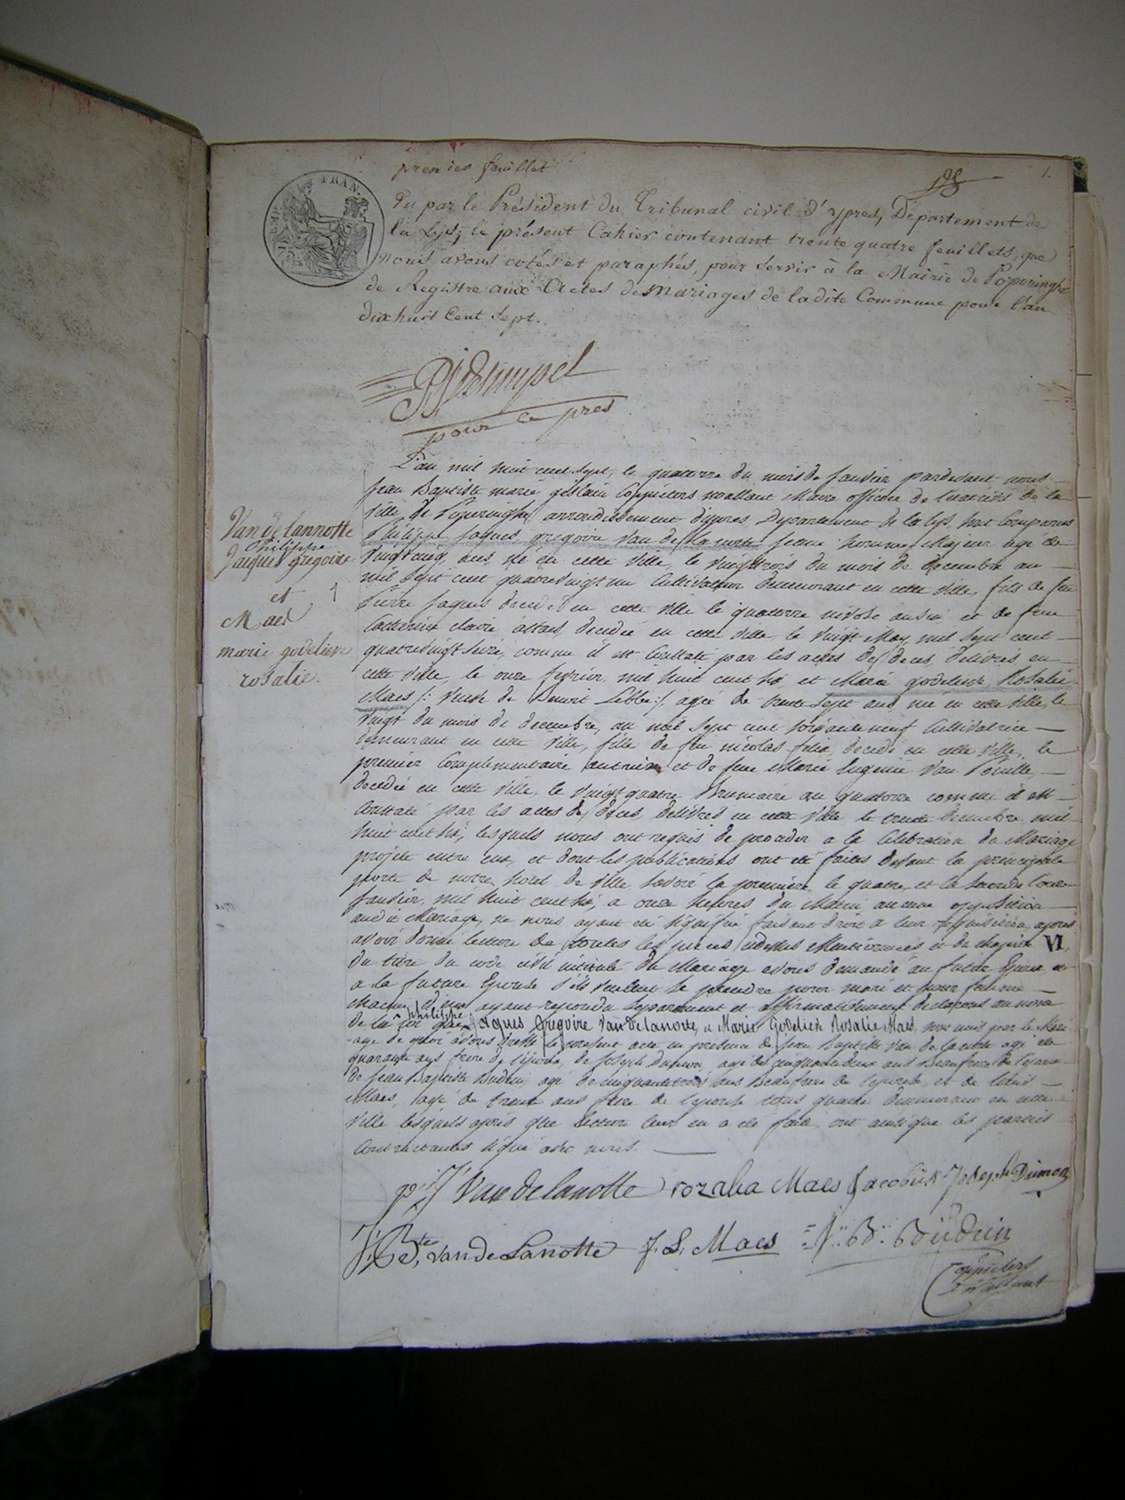 premier feuillet
1.
Vu par le Président du Tribunal civil d'ypres, Département de
la Lys, le présent Cahier contenant trente quatre feuillets, que
nous avons cotés et paraphés, pour servir à la Mairie de Poperinghe
de Registre aux Actes de Mariages de ladite Commune pour l'an
dix huit Cent Sept.
pour le pres
L'an mil huit cent sept, le quatorze du mois de Janvier pardevant nous
Jean Baptiste marie gislain Maire officier de l'
ville de Poperinghe, arrondissement d'ypres Département de la Lys, sont Comparus
Philippe Jaques gregoire Van de Lanotte Jeune homme Majeur agé de
vingt cinq ans, né en cette ville, le vingt trois du mois de decembre an
mil sept cent quatrevingt un Cultivateur demeurant en cette ville, fils de feu
Pierre Jaques decedé en cette ville le quatorze nivose an six et de feue
Catherine Claire decedée en cette ville, le vingt May mil sept cent
quatrevingt seize, comme il est Constaté par les actes de deces, delivrés en
cette ville, le onze fevrier mil huit cent six et Marie godelieve Rosalie
Maes /: Veuve de Benoit :/ agée de trente sept ans née en cette ville, le
vingt du mois de decembre, an mil sept cent soixante neuf Cultivatrice
demeurant en cette ville, fille de feu nicolas felix, decedé en cette ville, le
premier Complementaire an treize et de feue Marie Eugenie Van
decedée en cette ville, le vingt quatre Brumaire an quatorze comme il est
Constaté par les actes de deces, delivrés en cette ville le trente decembre mil
huit cent six, lesquels nous ont requis de proceder a la Celebration du Mariage
projetté entre eux, et dont les publications ont été faites devant la principale
porte de notre hotel de ville savoir la premiere, le quatre, et la seconde l'onze
Janvier, mil huit cent sept, a onze heures du Matin aucune opposition
audit Mariage, ne nous ayant été signifiée faisant droit a leur requisition, après
avoir donné lecture de toutes les pieces cidessus Mentionnées et du chapitre VI
du titre du code civil intitulé du Mariage avons demandé au futur Epoux et
a la future Epouse s'ils veulent se prendre pour mari et pour femme
chacun d'eux ayant repondu separement et affirmativement declarons au nom
de la loi que philippe Jaques Gregoire Van de Lanotte, et Marie Godelieve Rosalie Maes, sont unis par le Mari-
-age de quoi avons dressé le present acte en presence de Jean Baptiste Van de Lanotte agé de
quarante ans frere de l'époux de Joseph Dumon agé de cinquante deux ans Beaufrere de l'epoux
de Jean Baptiste Budein agé de cinquante trois ans Beaufrere de l'epouse, et de
Maes, agé de trente ans frere de l'epouse tous quatre demeurant en cette
ville lesquels après que lecture leur en a été faite, ont ainsi que les parties
Contractantes signé avec nous.
Van de Lannotte
Philippe
Jacques gregoire
et
Maes
marie godelieve
rosalie.
1
p: J: Van de Lanotte rozalia Maes Jacobus Joseph Dumon
J: Bte. van de Lanotte J. L. Maes J: B: Büdein